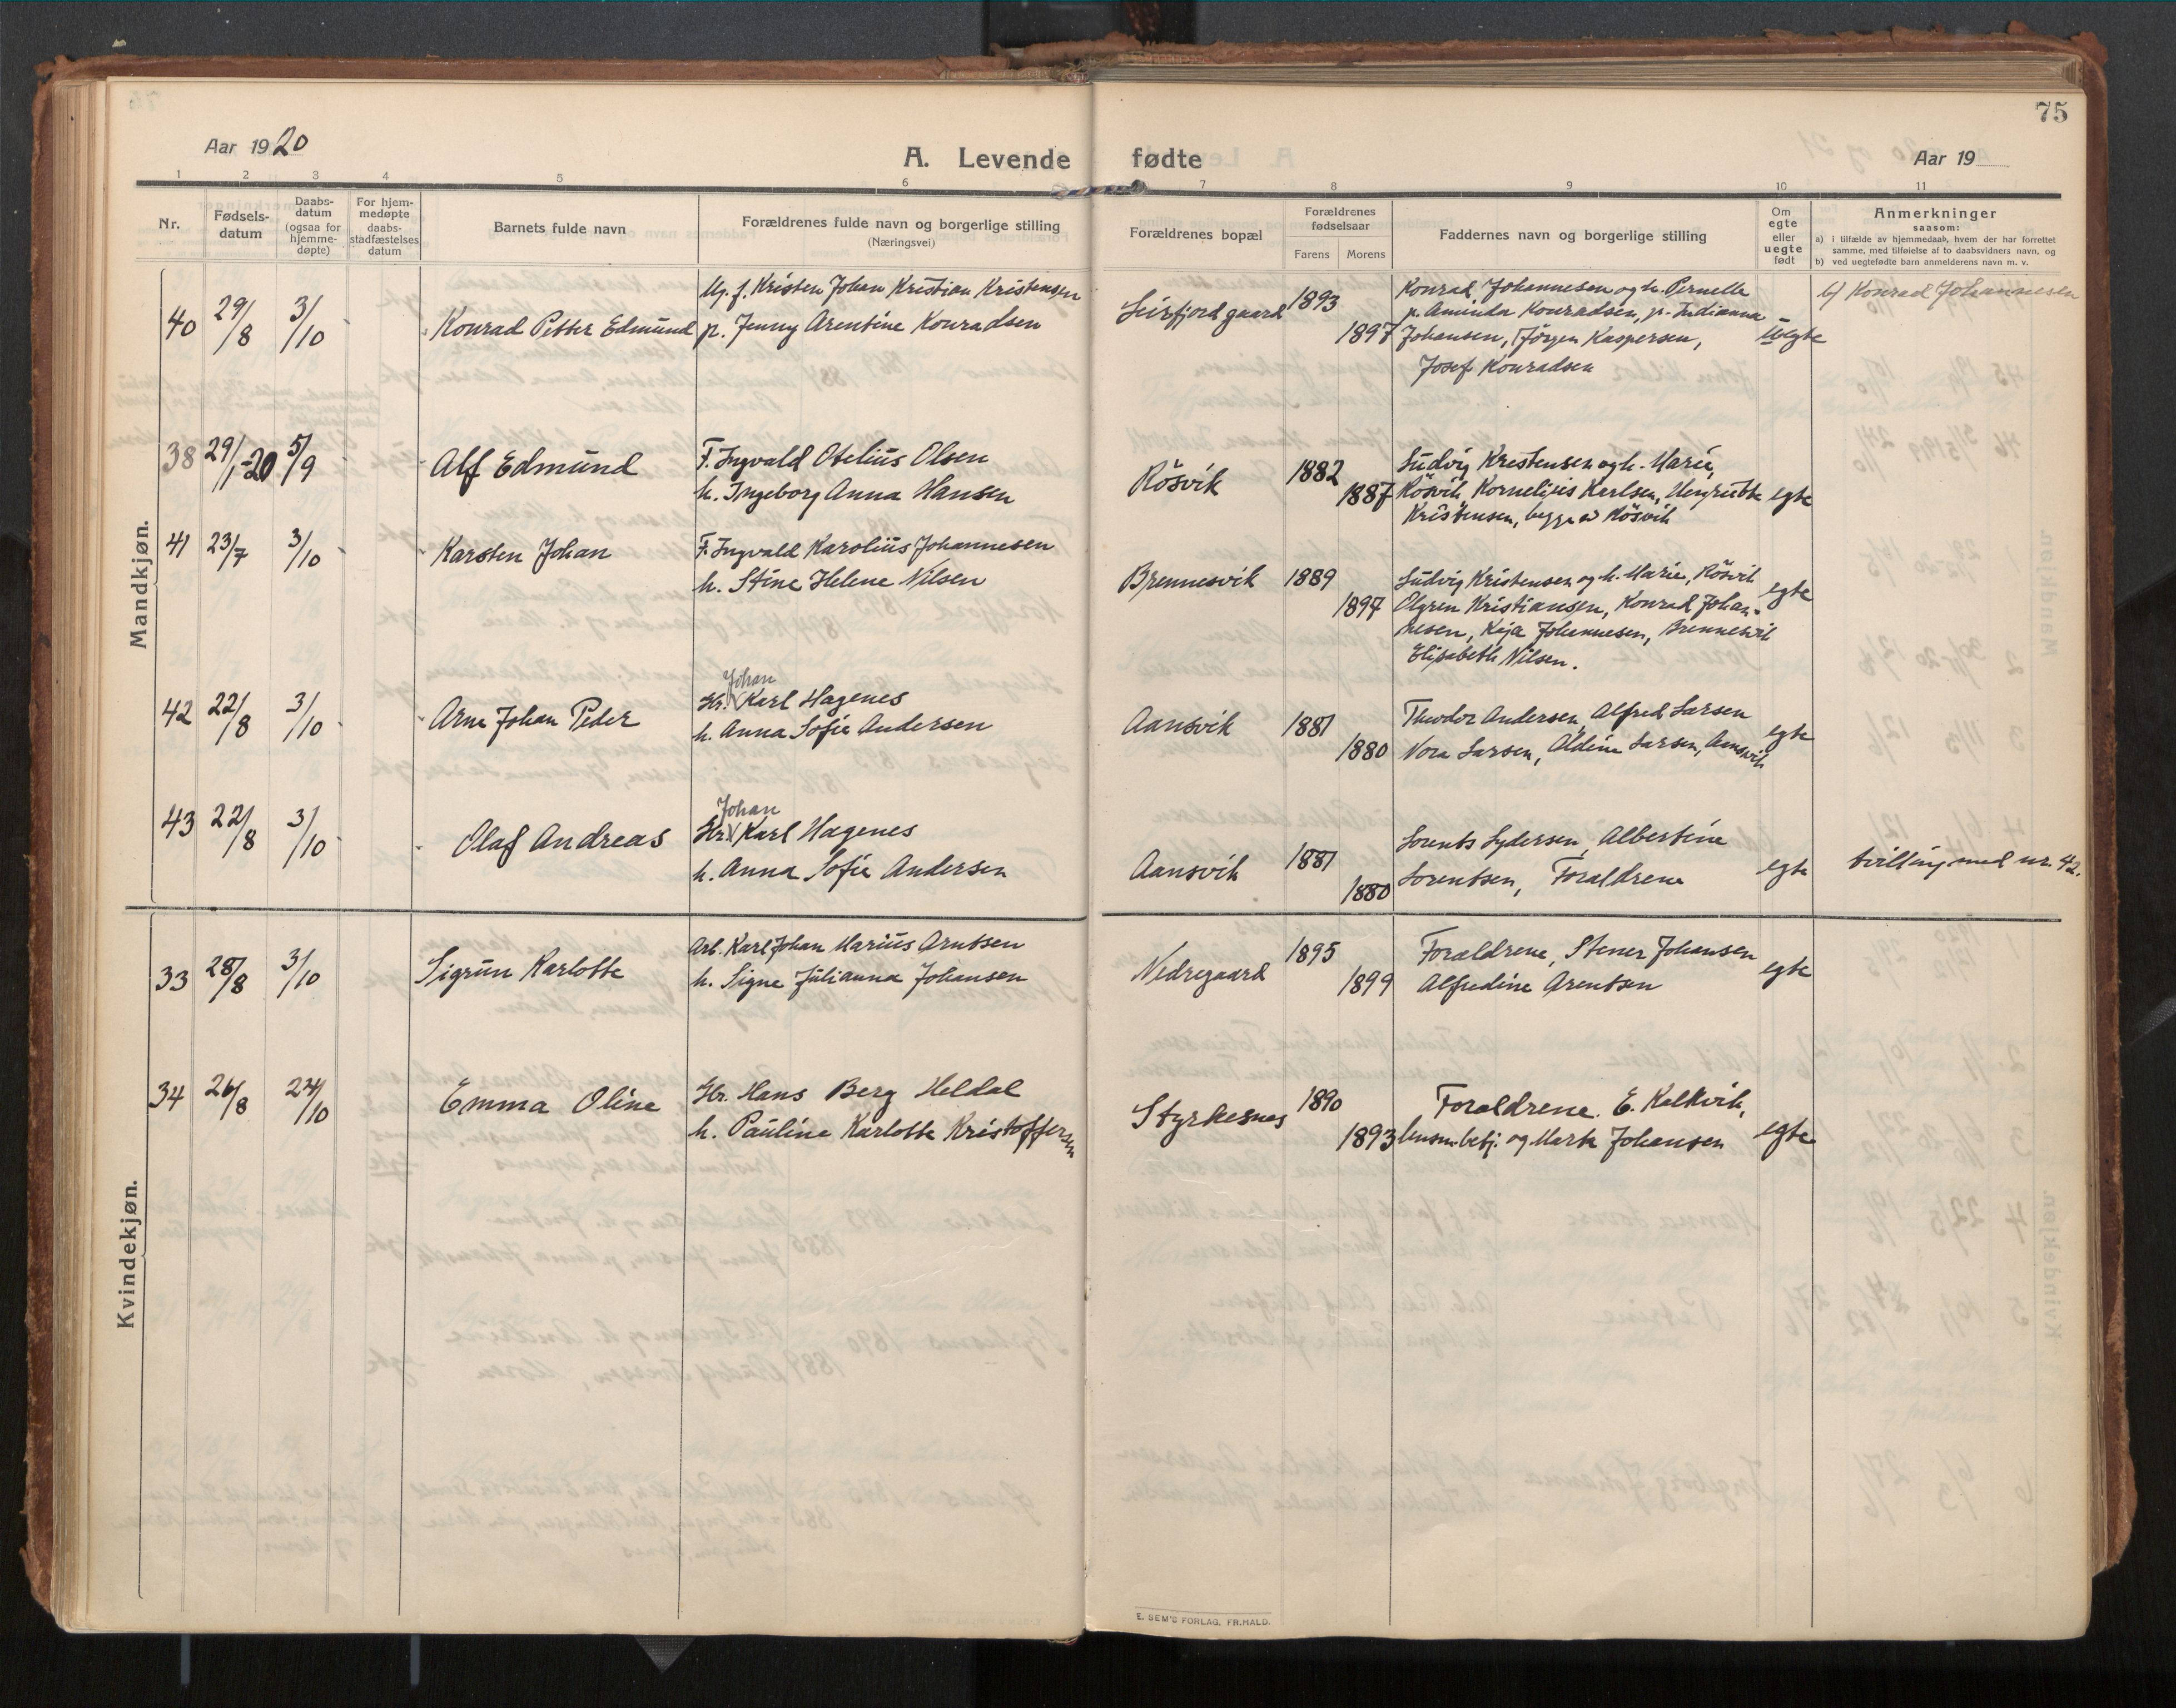 75
Aar 1920
A. Levende fødte
Aar 19
1 2 3 4 5 6 7 8 9 10 11
Nr.
Fødsels-
datum
Daabs-
datum
(ogsaa for
hjemme-
døpte)
For hjem-
medøpte
daabs-
stadfæstelses
datum
Barnets fulde navn
Forældrenes fulde navn og borgerlige stilling
(Næringsvei)
Forældrenes bopæl
Forældrenes
fødselsaar
Farens Morens
Faddernes navn og borgerlige stilling
Om
egte
eller
uegte
født
Anmerkninger
saasom:
a) i tilfælde av hjemmedaab, hvem der har forrettet
samme, med tilføielse af to daabsvidners navn, og
b) ved uegtefødte barn anmelderens navn m. v.
Mandkjøn.
40 29/8 3/10 Konrad Petter Edmund
Ug. f. Kristen Johan Kristian Kristensen
p. Jenny Arentine Konradsen
Leirfjordgaard 1893
1897
Konrad Johannesen og h. Pernelle
p. Aminda Konradsen, p. Indianna
Johansen, Jörgen Kaspersen,
Josef Konradsen
Uegte
b) Konrad Johannesen
38 29/1-20 5/9 Alf Edmund
F. Ingvald Otelius Olsen
h. Ingeborg Anna Hansen
Rösvik 1882
1887
Ludvig Krestensen og h. Marie,
Rösvik, Kornelius Karlsen, Henriette
Kristensen, begge av Rösvik
egte
41 23/7 3/10 Karsten Johan
F. Ingvald Karolius Johannesen
h. Stine Helene Nilsen
Brennesvik 1889
1897
Ludvig Kristensen og h. Marie, Rösvik
Olgren Kristiansen, Konrad Johan-
nesen, Kaja Johannesen, Brennesvik
Elisabeth Nilsen.
egte
42 22/8 3/10 Arne Johan Peder
Johan
Gr. Karl Hagenes
h. Anna Sofie Andersen
Aansvik 1881
1880
Theodor Andersen, Alfred Larsen
Nora Larsen, Aldine Larsen, Aansvik
egte
43 22/8 3/10 Olaf Andreas
Johan
Gr. Karl Hagenes
h. Anna Sofie Andersen
Aansvik 1881
1880
Sorents Lydersen, Albertine
Sorentsen, Forældrene
egte
tvilling med nr. 42.
Kvindekjøn.
33 28/8 3/10 Sigrun Karlotte
Arb. Karl Johan Marius Arntsen
h. Signe Julianna Johansen
Nedregaard 1895
1899
Forældrene, Stener Johansen
Alfredine Arentsen
egte
34 26/8 24/10 Emma Oline
Gr. Hans Berg Heldal
h. Pauline Karlotte Kristoffersen
Styrkesnes 1890
1893
Forældrene. E. Kalkvik,
lensm.betj. og Marta Johansen
egte
E. SEM'S FORLAG, FR.HALD.